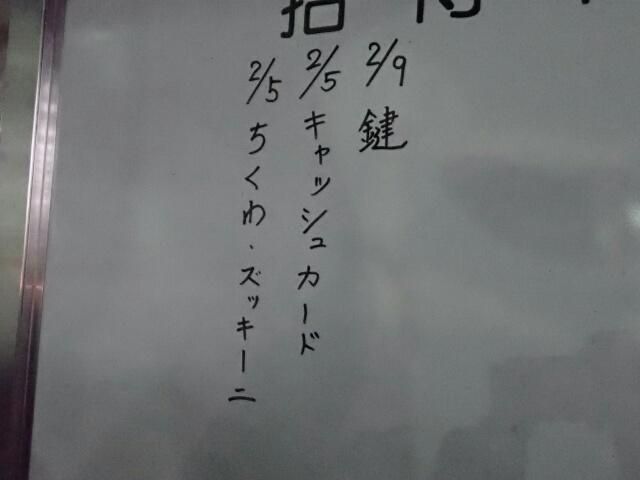 2/9 鍵
2/5 キャッシュカード
2/5 ちくわ・ズッキーニ